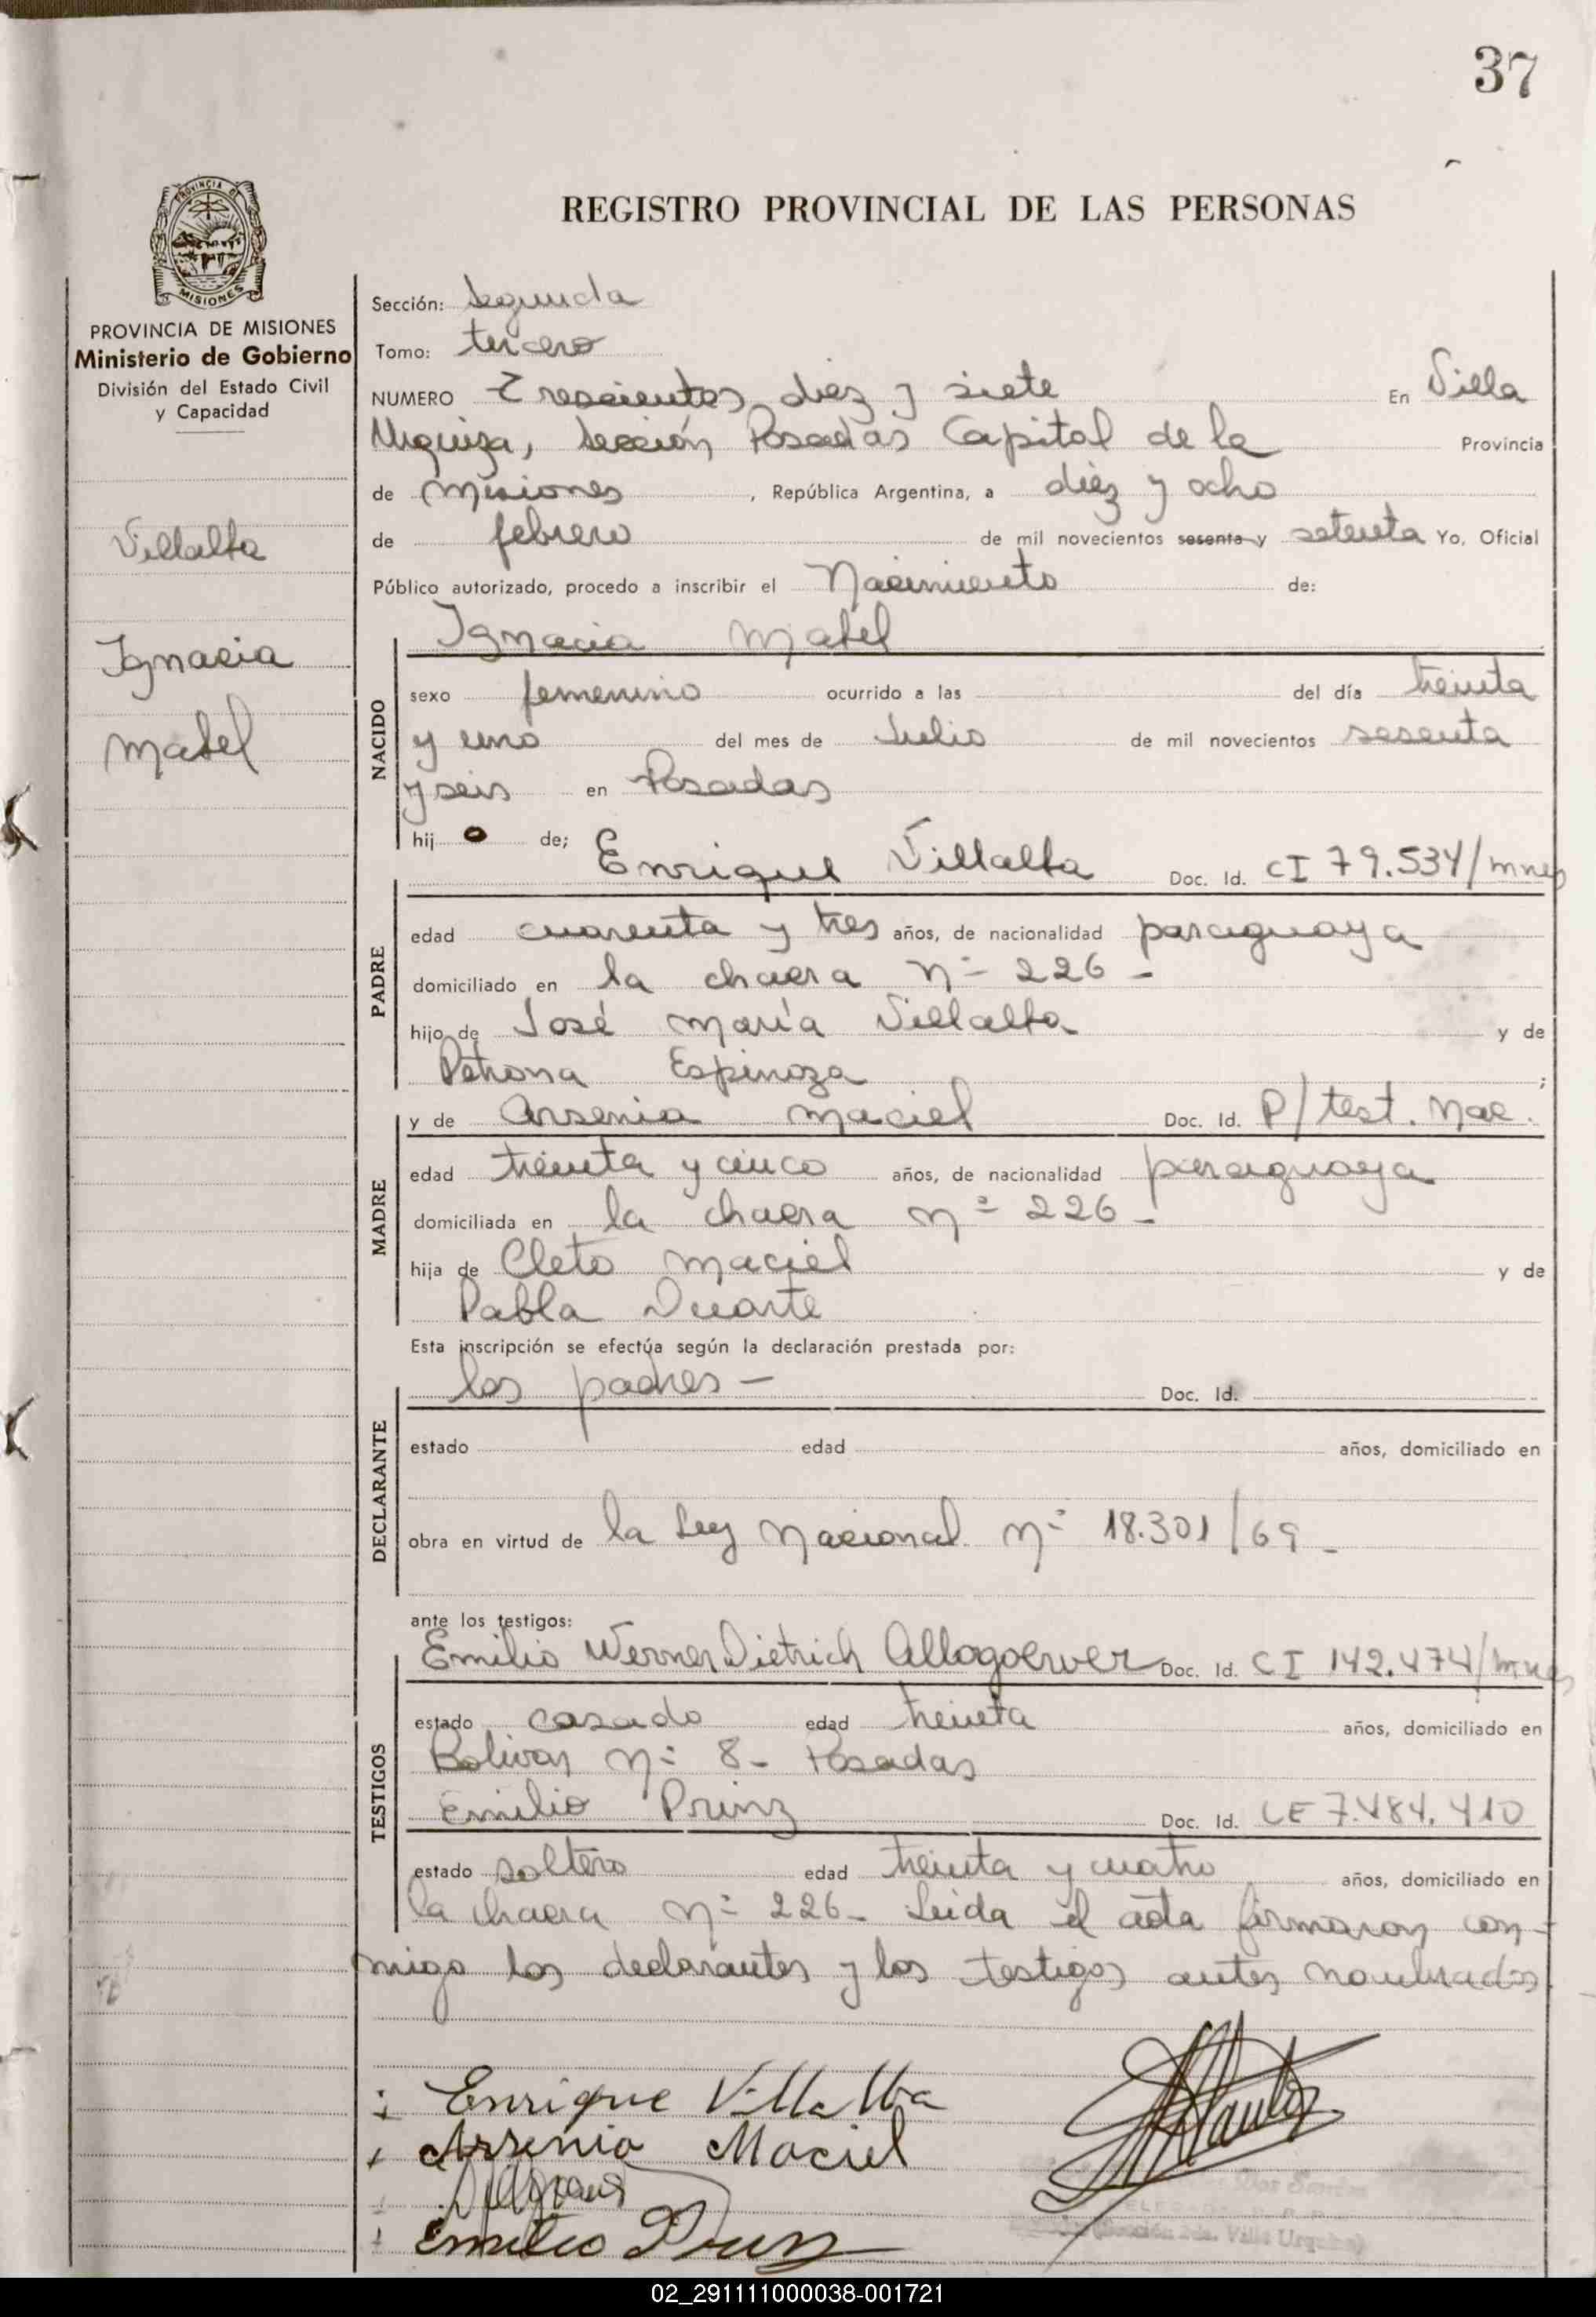 37
REGISTRO PROVINCIAL DE LAS PERSONAS
PROVINCIA DE
MISIONES
PROVINCIA DE MISIONES
Ministerio de Gobierno
División del Estado Civil
y Capacidad
Villalba
Ignacia
Mabel
Sección: Segunda
Tomo: tercero
NUMERO Trescientos diez y siete En Villa
Urquiza, Sección Posadas Capital de la Provincia
de Misiones, República Argentina, a diez y ocho
de febrero de mil novecientos sesenta y setenta Yo, Oficial
Público autorizado, procedo a inscribir el Nacimiento de:
Ignacia Mabel
NACIDO
sexo femenino ocurrido a las del día treinta
y uno del mes de Julio de mil novecientos sesenta
y seis en Posadas
hij o de;
Enrique Villalba Doc. Id. CI 79.534/mnes
PADRE
edad cuarenta y tres años, de nacionalidad paraguaya
domiciliado en la chacra Nº 226 -
hijo de José María Villalba y de
Petrona Espinoza ;
y de Arsenia Maciel Doc. Id. P/test. Nac.
MADRE
edad treinta y cinco años, de nacionalidad paraguaya
domiciliada en la chacra nº 226 -
hija de Cleto Maciel y de
Pabla Duarte
Esta inscripción se efectúa según la declaración prestada por:
los padres - Doc. Id.
DECLARANTE
estado edad años, domiciliado en
obra en virtud de la Ley Nacional nº 18.301/69 -
ante los testigos:
Emilio Werner Dietrich Allogoerwer Doc. Id. CI 142.474/mnes
TESTIGOS
estado casado edad treinta años, domiciliado en
Bolivar nº 8 - Posadas
Emilio Prinz Doc. Id. LE 7.484.410
estado soltero edad treinta y cuatro años, domiciliado en
la chacra nº 226 - Leida el acta firmaron con-
migo los declarantes y los testigos antes nombrados
Enrique Villalba
Arsenia Maciel
Emilio Prinz
(Sección 2da. Villa Urquiza)
02_291111000038-001721